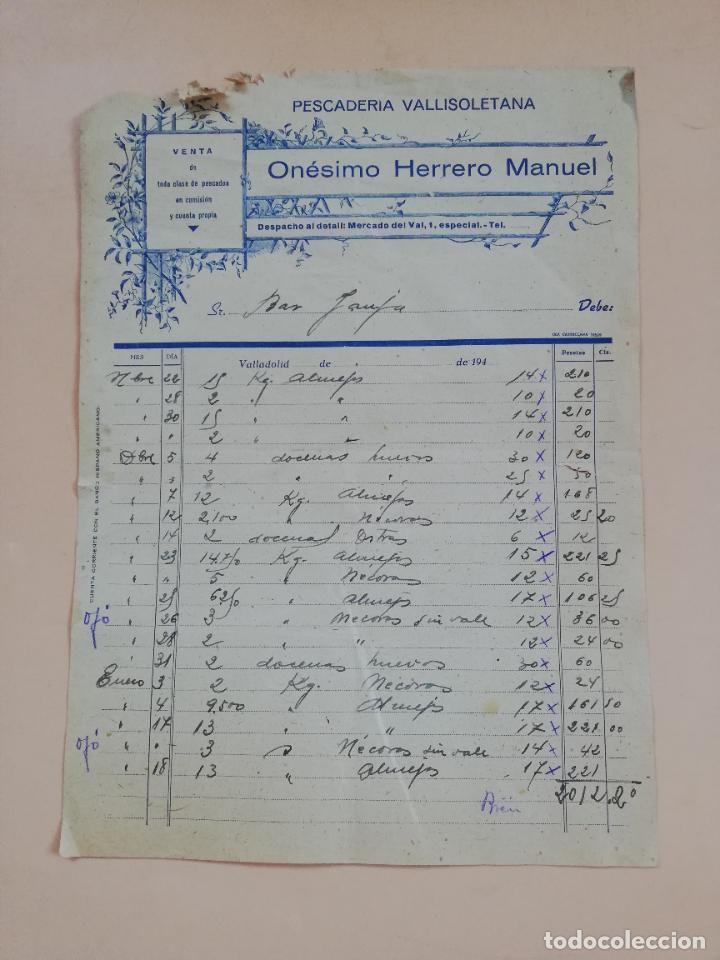 PESCADERIA VALLISOLETANA
VENTA
de
toda clase de pescados
en comisión
y cuenta propia
Onésimo Herrero Manuel
Despacho al detall: Mercado del Val, 1, especial.-Tel.
Sr. Bar Debe:
MES DÍA Valladolid de de 194 Pesetas Cts.
CUENTA CORRIENTE CON EL BANCO HISPANO AMERICANO
Nbre 22 15 Kg. Almejas 14 x 210
" 28 2 " " 10 x 20
" 30 15 " " 14 x 210
" " 2 " " 10 x 20
Dbre 5 4 docenas huevos 30 x 120
" " 2 " " 25 x 50
" 7 12 Kg. Almejas 14 x 168
" 12 2,100 " Nécoras 12 x 25 20
" 14 2 docenas Ostras 6 x 12
" 23 14.750 Kg. Almejas 15 x 221 25
" " 5 " Nécoras 12 x 60
" 25 6250 " Almejas 17 x 106 25
ojó " 26 3 " Nécoras sin vale 12 x 36 00
" 28 2 " " 12 x 24 00
" 31 2 docenas huevos 30 x 60
Enero 3 2 Kg. Nécoras 12 x 24
" 4 9,500 " Almejas 17 x 161 50
" 17 13 " " 17 x 221 00
ojó " " 3 " Nécoras sin vale 14 x 42
" 18 13 " Almejas 17 x 221
2012.20
Bién
todocoleccion
todocoleccion.net